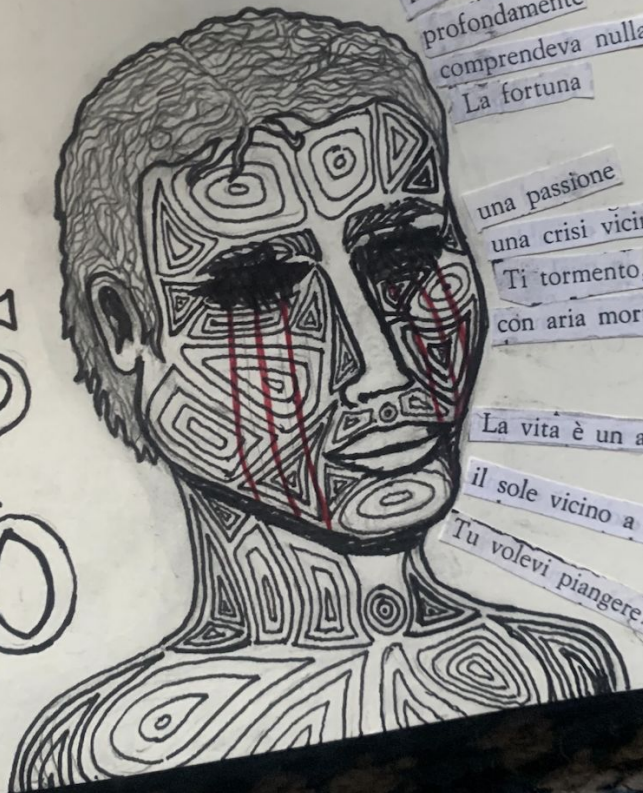 profondamente
comprendeva nulla
La fortuna
una passione
una crisi
Ti tormento
con aria
La vita è un
il sole vicino a
Tu volevi piangere